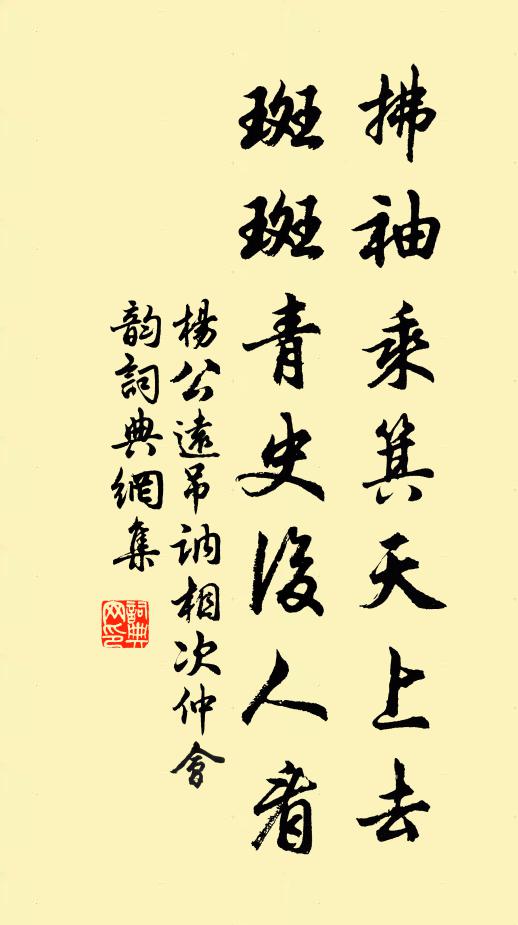 拂袖乘箕天上去
斑斑青史後人看
楊公遠吊訥相次仲會
韵詞典網集
詞典網印